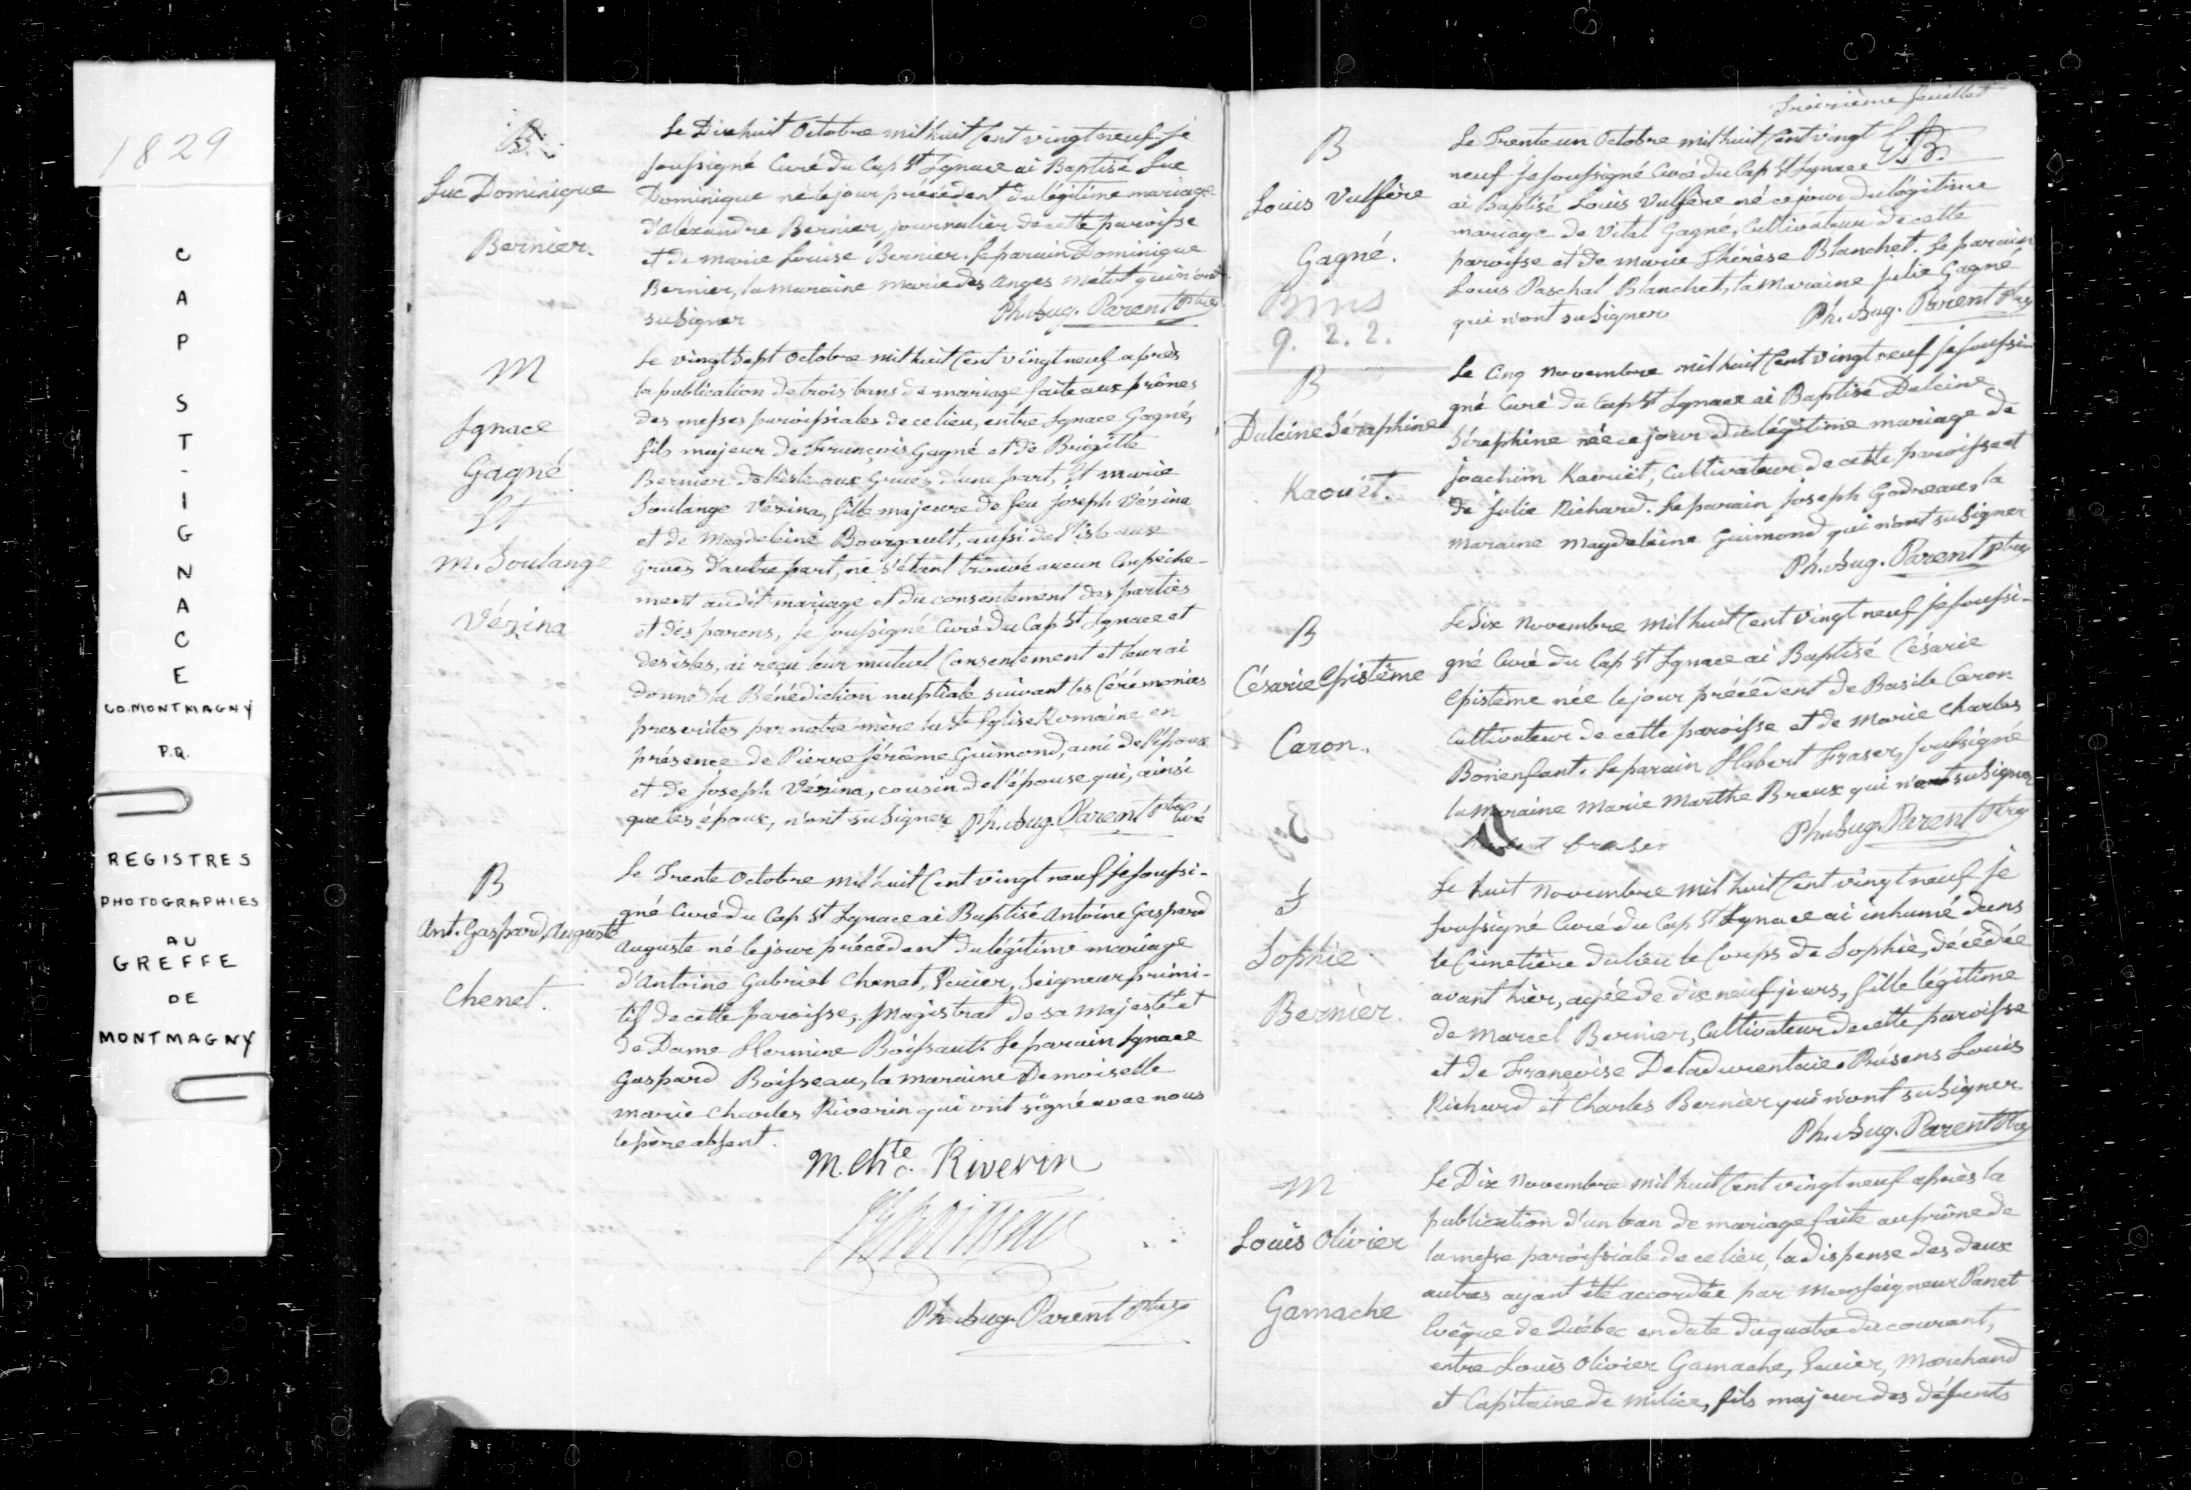 1829
CAP ST-IGNACE
CO. MONTMAGNY
P.Q.
REGISTRES
PHOTOGRAPHIES
AU
GREFFE
DE
MONTMAGNY
B.
Luc Dominique
Bernier.
Le Dix huit Octobre mil huit Cent vingt neuf Je
soussigné Curé du Cap St Ignace ai Baptisé Luc
Dominique né le jour précédent du légitime mariage
d'Alexandre Bernier, journalier de cette paroisse
et de marie Louise Bernier. Le parain Dominique
Bernier, la maraine marie des anges métot qui n'ont
su signer Ph. Aug. Parent Ptre
M
Ignace
Gagné
Et
M. Soulange
Vézina
Le vingt Sept Octobre mil huit Cent vingt neuf après
la publication de trois bans de mariage faite aux prônes
des messes paroissiales de ce lieu, entre Ignace Gagné,
fils majeur de François Gagné et de Brigitte
Bernier de l'isle aux Grues d'une part, Et marie
Soulange Vézina, fille majeure de feu Joseph Vézina
et de Magdeleine Bourgault, aussi de l'isle aux
Grues d'autre part, ne s'étant trouvé aucun Empêche-
ment audit mariage et du consentement des parties
et des parens, Je Soussigné Curé du Cap St Ignace et
des isles, ai reçu leur mutuel Consentement et leur ai
donné la Bénédiction nuptiale suivant les Cérémonies
prescrites par notre mère la Ste Eglise Romaine en
présence de Pierre Jérôme Guimond, ami de l'époux
et de Joseph Vézina, cousin de l'épouse qui, ainsi
que les époux, n'ont su signer Ph. Aug. Parent Ptre Curé
B
Ant. Gaspard, Auguste
Chenet.
Le Trente Octobre mil huit Cent vingt neuf Je soussi-
gné Curé du Cap St Ignace ai Baptisé Antoine Gaspard
Auguste né le jour précédent du légitime mariage
d'Antoine Gabriel Chenet, Ecuier, Seigneur primi-
tif de cette paroisse, Magistrat de sa Majesté et
de Dame Hermine Boissault. Le parain Ignace
Gaspard Boisseau, la maraine Demoiselle
marie Charles Riverin qui ont signé avec nous
le père absent.
M. Chte. Riverin
Ph. Aug. Parent Ptre
Troisième feuillet
B
Louis Vulfère
Gagné.
Bms
9. 2. 2.
Le Trente un Octobre mil huit Cent vingt
neuf Je soussigné Curé du Cap St Ignace
ai Baptisé Louis Vulfère né ce jour du légitime
mariage de Vital Gagné, Cultivateur de cette
paroisse et de marie Thérèse Blanchet. Le parain
Louis Paschal Blanchet, la Maraine Julie Gagné
qui n'ont su Signer Ph. Aug. Parent Ptre
B
Dulcine Séraphine
Kaouët.
Le Cinq Novembre mil huit Cent vingt neuf Je soussi-
gné Curé du Cap St Ignace ai Baptisé Dulcine
Séraphine née ce jour du légitime mariage de
Joachim Kaouët, Cultivateur de cette paroisse et
de Julie Richard. Le parain Joseph Godreau, la
maraine Magdeleine Guimond qui n'ont su Signer
Ph. Aug. Parent Ptre
B
Césarie Epistème
Caron.
Le Six Novembre mil huit Cent vingt neuf Je soussi-
gné Curé du Cap St Ignace ai Baptisé Césarie
Epistème née le jour précédent de Basile Caron
Cultivateur de cette paroisse et de Marie Charles
Bonenfant. Le parain Hubert Fraser, soussigné
la Maraine Marie Marthe Breux qui n'ont su Signer
Ph. Aug. Parent Ptre
Hubert fraser
S
Sophie
Bernier.
Le huit Novembre mil huit Cent vingt neuf Je
soussigné Curé du Cap St Ignace ai inhumé dans
le Cimetière du lieu le Corps de Sophie, décédée
avant hier, agée de dix neuf jours, fille légitime
de Marcel Bernier, Cultivateur de cette paroisse
et de Françoise Deladurentaie. Présens Louis
Richard et Charles Bernier qui n'ont su Signer
Ph. Aug. Parent Ptre
M
Louis Olivier
Gamache
Le Dix Novembre mil huit Cent vingt neuf après la
publication d'un ban de mariage faite au prône de
la messe paroissiale de ce lieu, la dispense des deux
autres ayant été accordée par Monseigneur Panet
Evêque de Québec en date du quatre du courant,
entre Louis Olivier Gamache, Ecuier, Marchand
et Capitaine de milice, fils majeur des défunts